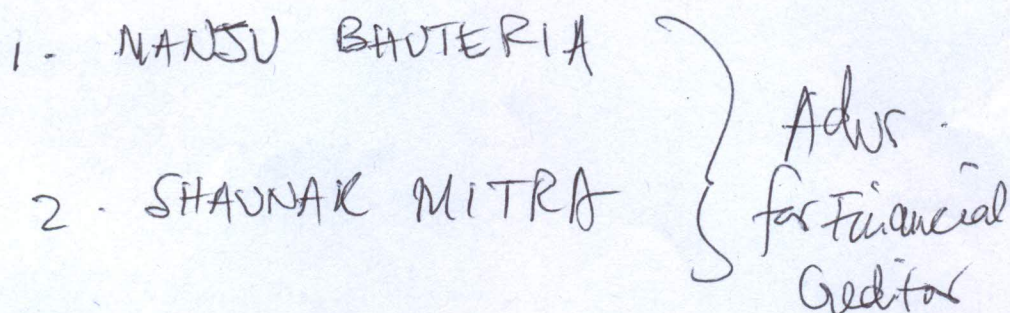 1. MANJU BHUTERIA
2. SHAUNAK MITRA
Advs.
for Financial
Creditor